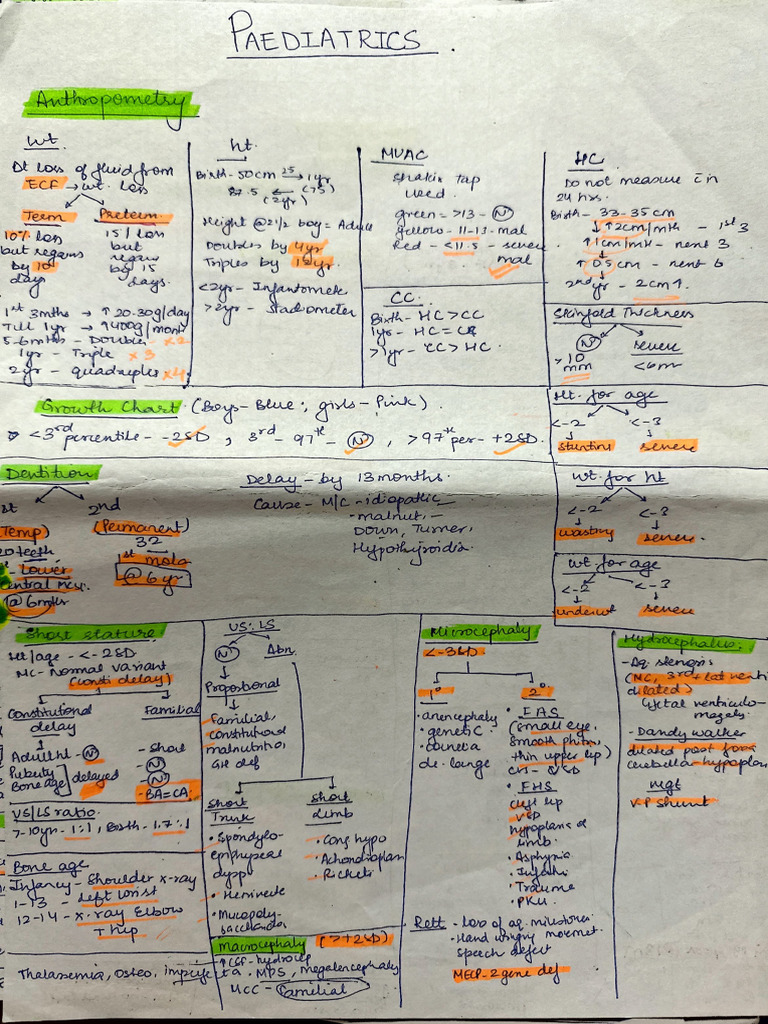 PAEDIATRICS.
Anthropometry
wt.
Dt loss of fluid from
ECF → wt. loss
Term Preterm
10% loss
but regains
by 10
days
15% loss
but
regain
by 15
days.
1st 3mths → ↑ 20-30g/day
Till 1yr → 400g/month
5-6mths - Doubles - x2
1yr - Triple x3
2yr - quadruples x4
ht.
Birth - 50cm 25→ 1yr
87.5 ← (75)
(2yr)
Height @ 2 1/2 boy = Adult
Doubles by 4yr
Triples by 12yr.
<2yr - Infantometer
>2yr - Stadiometer
MUAC
Shakir tap
used.
green = >13 - N
yellow - 11-13 - mal
Red - <11.5 - severe
mal
CC.
Birth - HC > CC
1yr - HC = CC
>1yr - CC > HC.
HC
Do not measure in
24 hrs.
Birth - 33-35cm
↑2cm/mth - 1st 3
↑1cm/mth - next 3
↑0.5cm - next 6
2nd yr - 2cm↑.
Skinfold Thickness
N severe
>10 <6m
mm
Growth Chart (Boys - Blue; girls - Pink).
<3rd percentile - -2SD, 3rd - 97th - N, >97th per - +2SD.
Ht. for age
<-2 <-3
stunting severe
Dentition
1st 2nd
(Temp) (Permanent)
20 teeth 32
1st - lower 1st molar
central incsi. @ 6yr
@ 6mths
Delay - by 13 months.
Cause - M/C - idiopathic
malnut,
Down, Turner,
Hypothyroidis.
Wt. for ht
<-2 <-3
wasting severe.
wt. for age
<-2 <-3
underwt severe
Short stature
Ht/age - <-2SD
MC - Normal variant
(consti delay)
Constitutional
delay
Familial
Adult ht - N
Puberty
Bone age
delayed
- short
- N
- N
- BA = CA
US/LS ratio
7-10yr - 1:1, Birth - 1.7:1
Bone age
Infancy - Shoulder x-ray
1-13 - left wrist
12-14 - x-ray Elbow
+ hip
US:LS
N Abn.
Proportional
Familial,
constitutional
malnutrition,
GH def
Short
Trunk
• Spondylo-
epiphyseal
dysp
• Hemiverte
• Mucopoly-
saccharidos
Short
limb
• Cong hypo
• Achondroplan
• Rickets
Macrocephaly (>+2SD)
↑CSF - hydroceph
Thalasemia, Osteo, imperfecta. MPS, megalencephaly
MCC - Familial
Microcephaly
<-3SD
1° 2°
• anencephaly
• genetic
• cornelia
de. lange
• FAS
(small eye,
smooth philtru,
thin upper lip)
• FHS
cleft lip
VSD
hypoplasia of
limb.
• Asphyxia
• Infethi
• Trauma
• PKU.
Rett - loss of aq. milestones.
- Hand wringing movemet.
Speech defect
MECP-2 gene def
Hydrocephalus.
- Aq stenosis
(MC, 3rd + lat ventri
dilated)
fetal ventriculo-
magely.
- Dandy walker
dilated post fossa
cerebellar hypoplan
mgt
V-P shunt